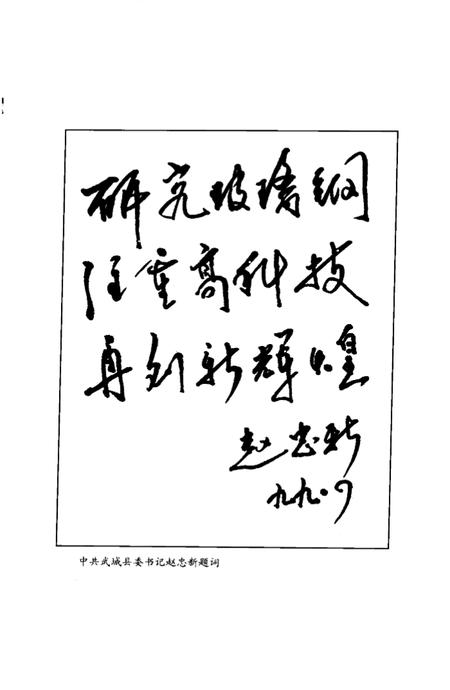 研究玻璃钢
注重高科技
再创新辉煌
赵忠新
九九.9
中共武城县委书记赵忠新题词